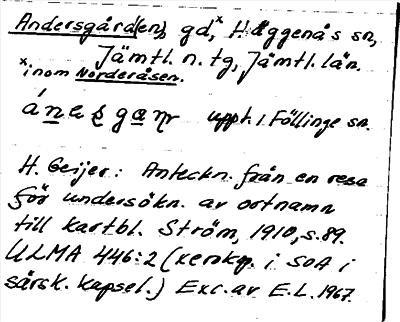 Andersgård(en), gd,ˣ Häggenås sn,
Jämtl. n. tg, Jämtl. län.
ˣ inom Norderåsen.
uppt. i Föllinge sn.
H. Geijer: Anteckn. från en resa
för undersökn. av ortnamn
till kartbl. Ström, 1910, s. 89.
ULMA 446:2 (xeroxkop. i SOA i
särsk. kapsel.) Exc. av E.L. 1967.